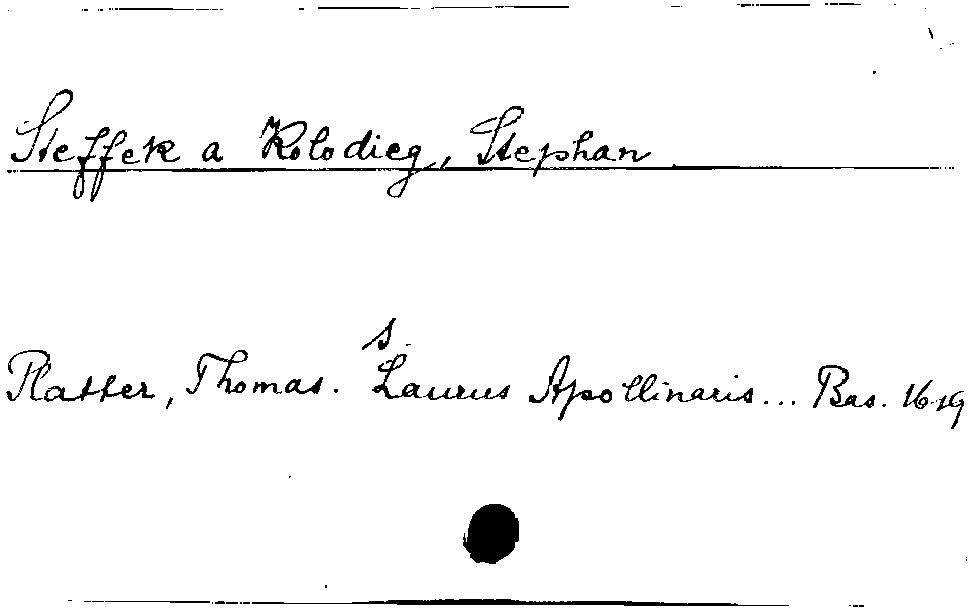 Steffek a Kolodieg, Stephan
s.
Platter, Thomas. Laurus Apollinaris... Bas. 1619